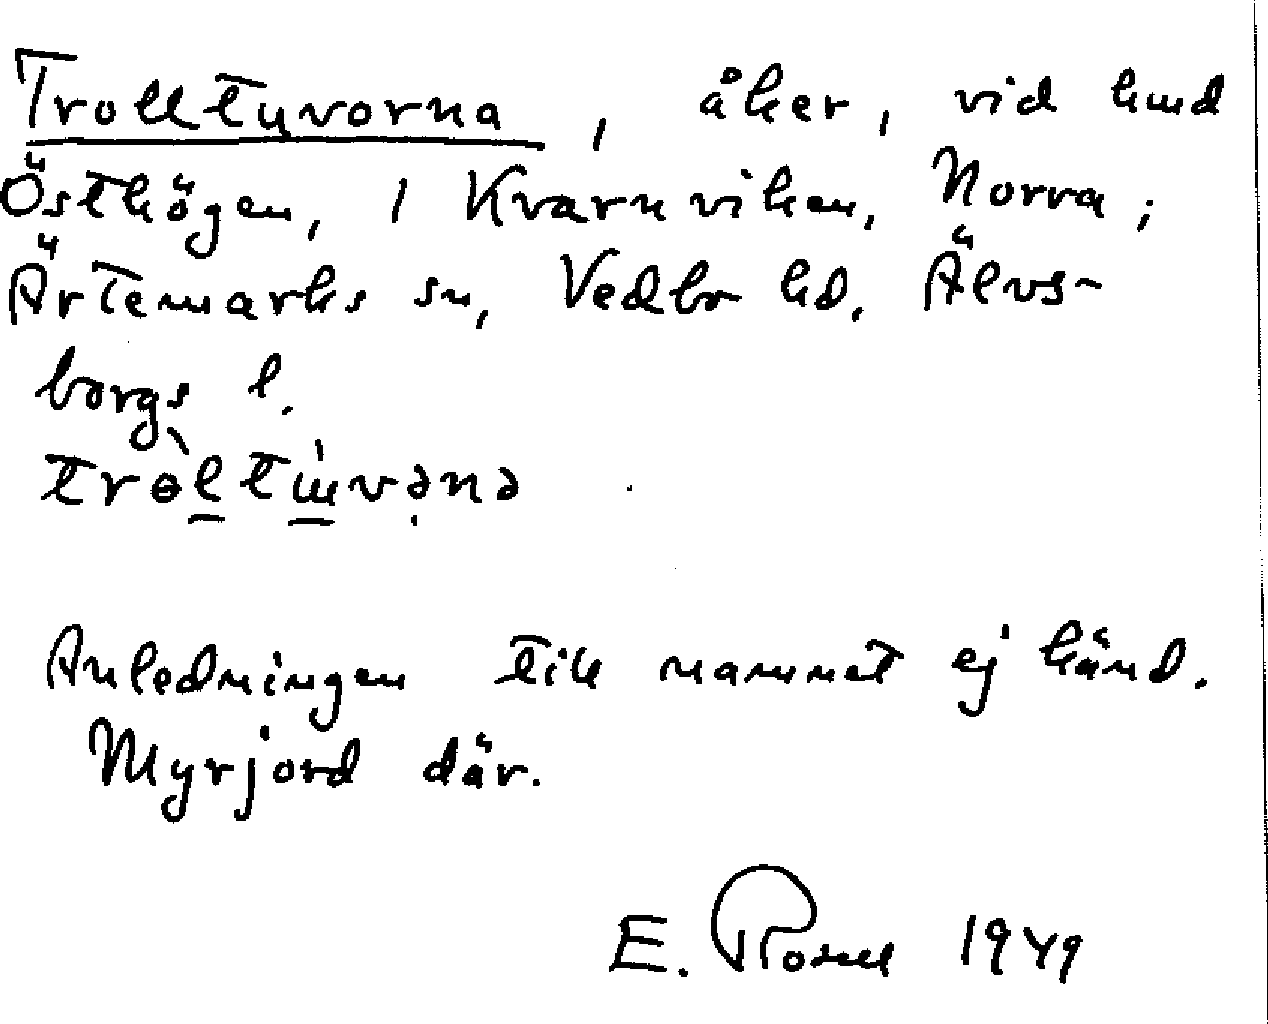 Trolltuvorna, åker, vid lmd
Östhögen, 1 Kvarnviken, Norra;
Ärtemarks sn, Vedbo hd. Älvs-
borgs l.
Anledningen till namnet ej känd.
Myrjord där.
E. 1949